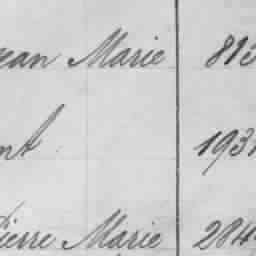 ean Marie 813
nt 193
Pierre Marie 284